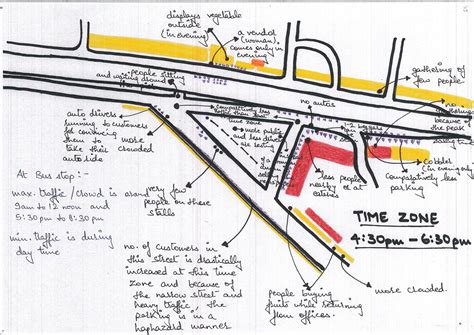 displays vegetable
outside
(in evening)
a vendor
(woman),
comes only in
evening
gathering of
few people
people sitting
and waiting around
no autos
comparatively less
no
because of
the peak
auto drivers
running to customers
for convincing
them to
take their crowded
auto ride
more public
and less drivers
are
setting
1-2 beggars
less people
nearby
eateries
cobbler
(in evening only)
comparatively less
parking
At Bus stop :-
max. traffic / crowd is around
9am to 12 noon and
5:30 pm to 8:30 pm
min. traffic is during
day time
very few
people on these
stalls
TIME ZONE
4:30pm - 6:30pm
no. of customers in
this street is drastically
increased at this time
zone and because of
the narrow street and
heavy traffic, the
parking is in a
haphazard manner
people buying
fruits while returning
from offices.
more crowded.